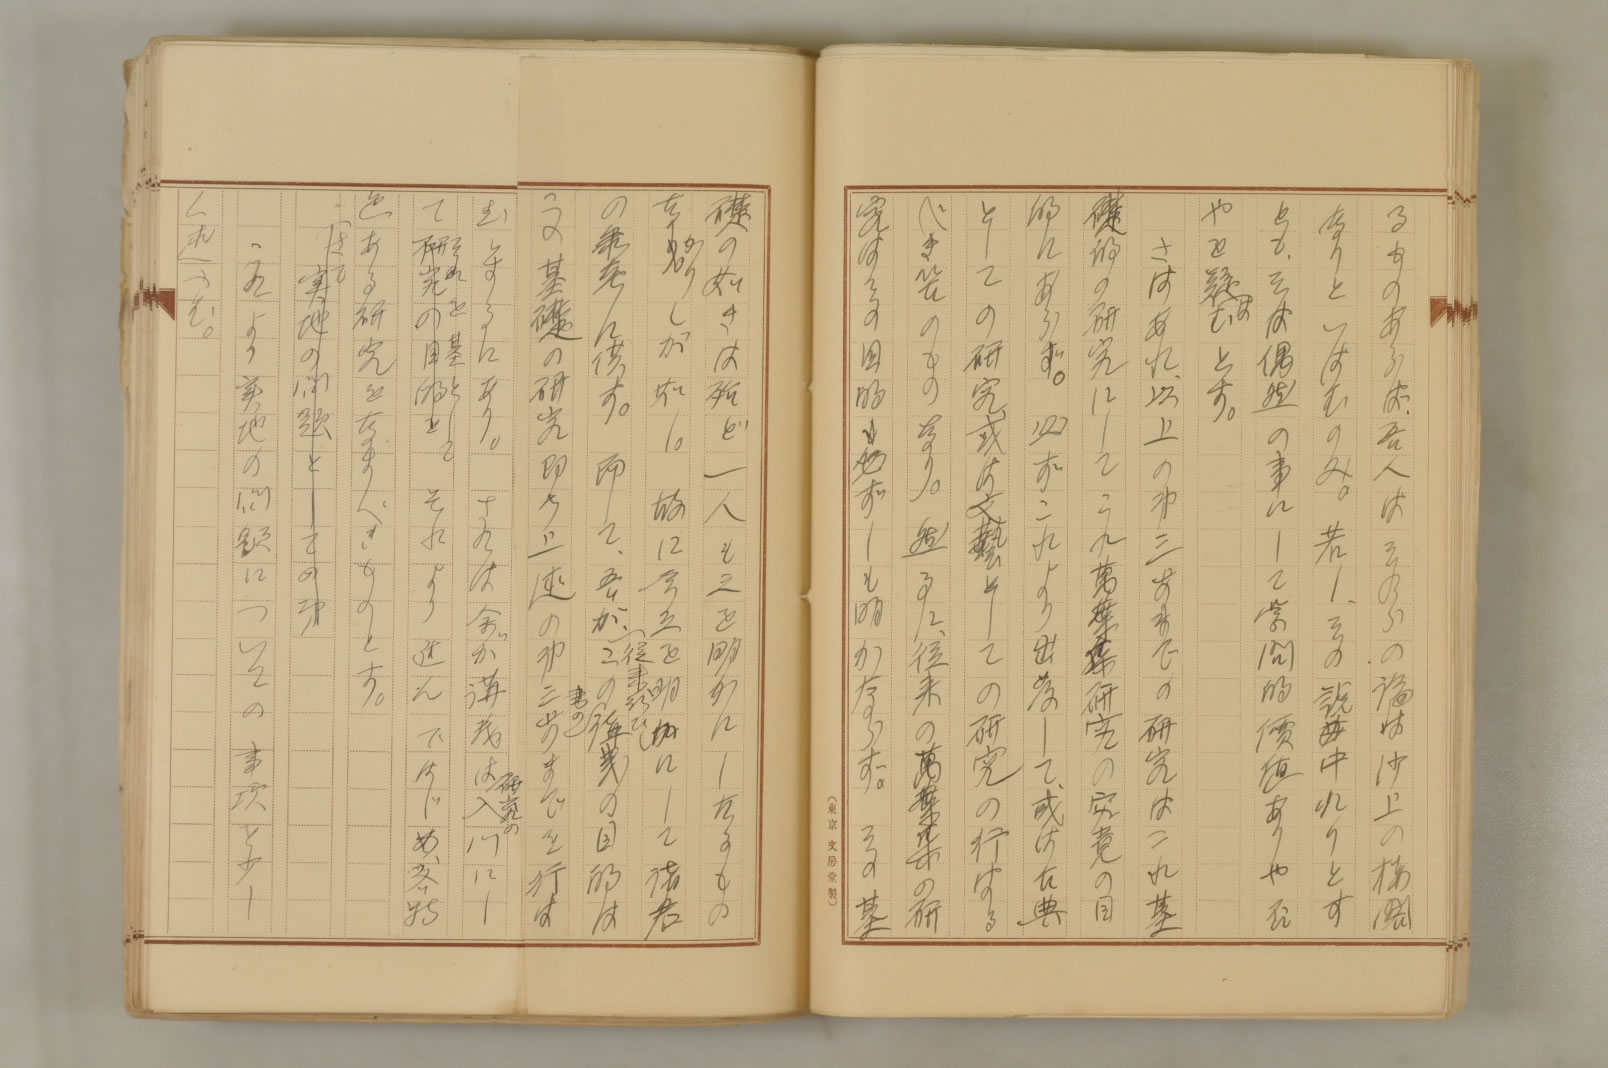 るものあらば、吾人はそれらの論は沙上の楼閣
なりといはむのみ。若し、その説毎中れりとす
とも、そは偶然の事にして学問的價値ありや否
やを疑はむとす。
さはあれ、以上の第三歩までの研究はこれ基
礎的の研究にしてこれ萬葉集研究の究竟の目
的にあらず。必ずこれより出発して、或は古典
としての研究、或は文藝としての研究の行はる
べき筈のものなり。然るに、従来の萬葉集の研
究はその目的も必ずしも明かならず。その基
(東京 文房堂製)
礎の如きは殆ど一人も之を明かにしたるもの
なかりしが如し。故に今之を明かにして諸君
の にす。而して、吾が、この講義の目的は
従来
この基礎の研究即ち上述の第三歩までを行は
むとするにあり。されば余が講義は研究の入門にし
て研究の目的と それより進んではじめて、特
それを基として
色ある研究をなすべきものとす。
さて
実地の問題としての
これより実地の問題についての事項を少し
く述べむ。